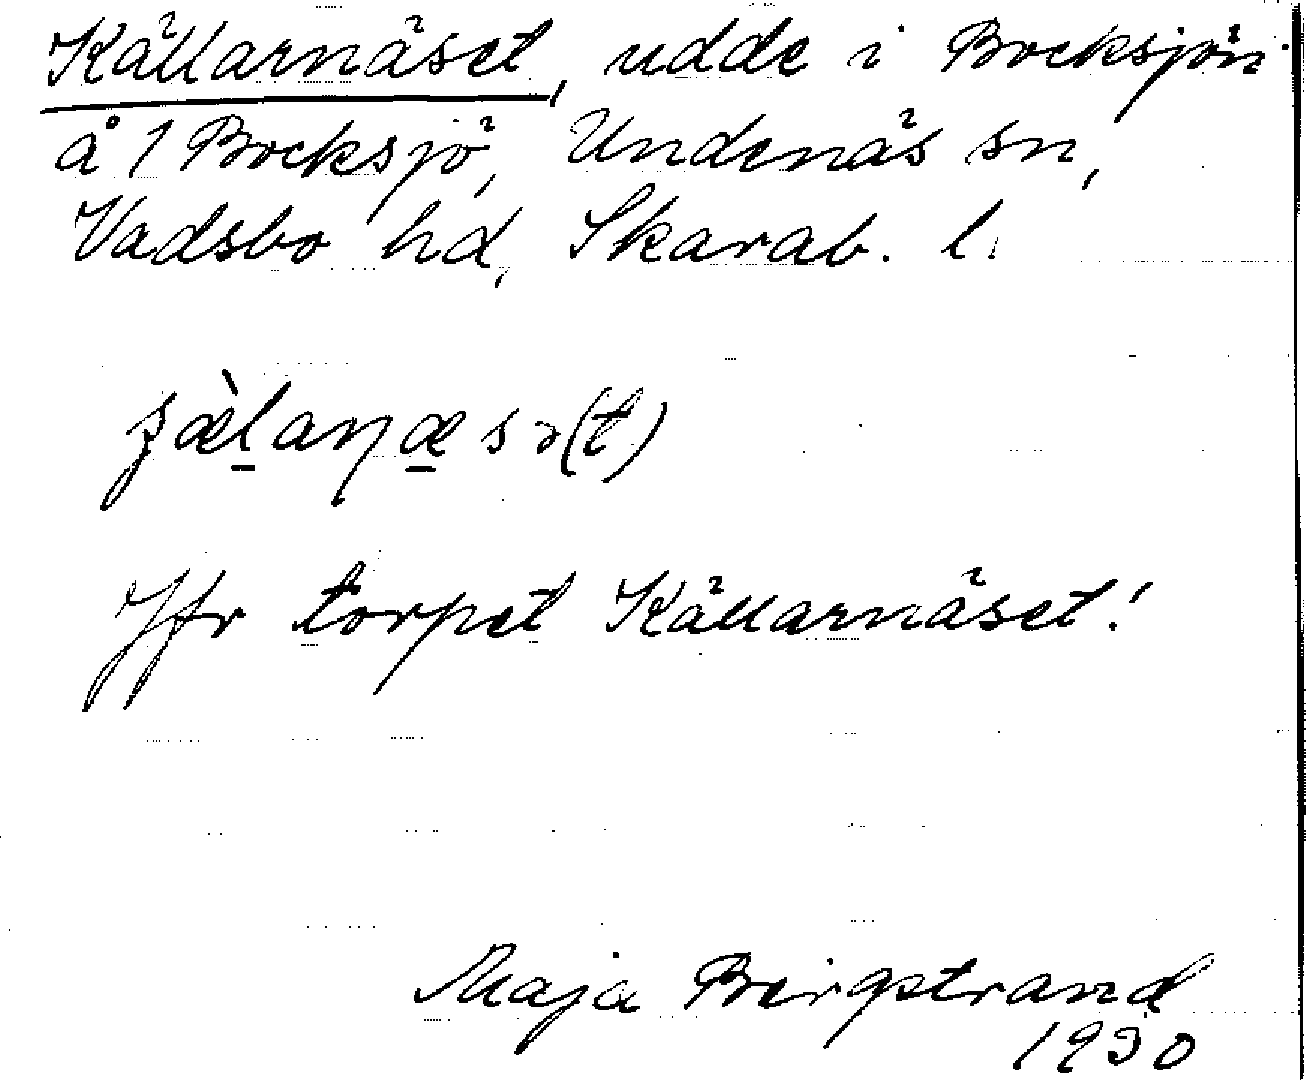 Källarnäset, udde i Bocksjön
å 1 Bocksjö, Undenäs sn,
Vadsbo hd, Skarab. l.
Jfr torpet Källarnäset!
Maja Bergstrand
1930